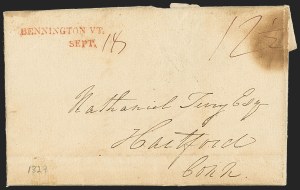 BENNINGTON VT.
SEPT. 18
12½
Nathaniel Terry Esq
Hartford
Conn.
1824